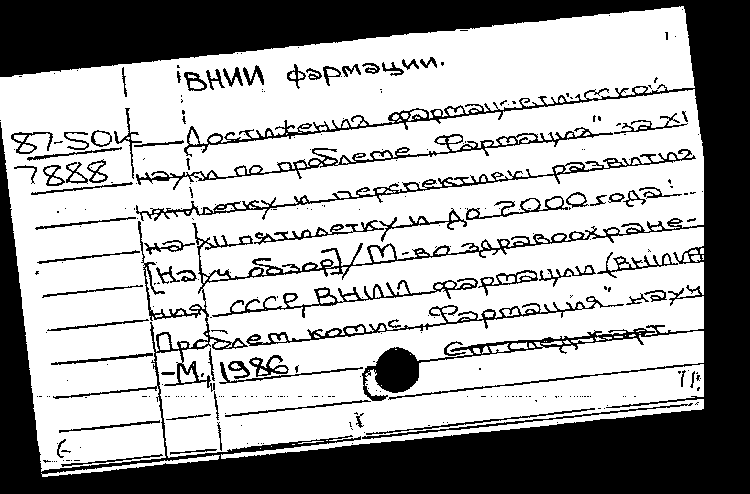 ВНИИ фармации.
87-50К Достижения фармацевтической
7888 науки по проблеме „Фармация" за XI
пятилетку и перспективы развития
на XII пятилетку и до 2000 года:
[Науч. обзор] / М-во здравоохране-
ния СССР, ВНИИ фармации (ВНИИФ
Проблем. комис. „Фармация" науч
-М., 1986.
См. след. карт.